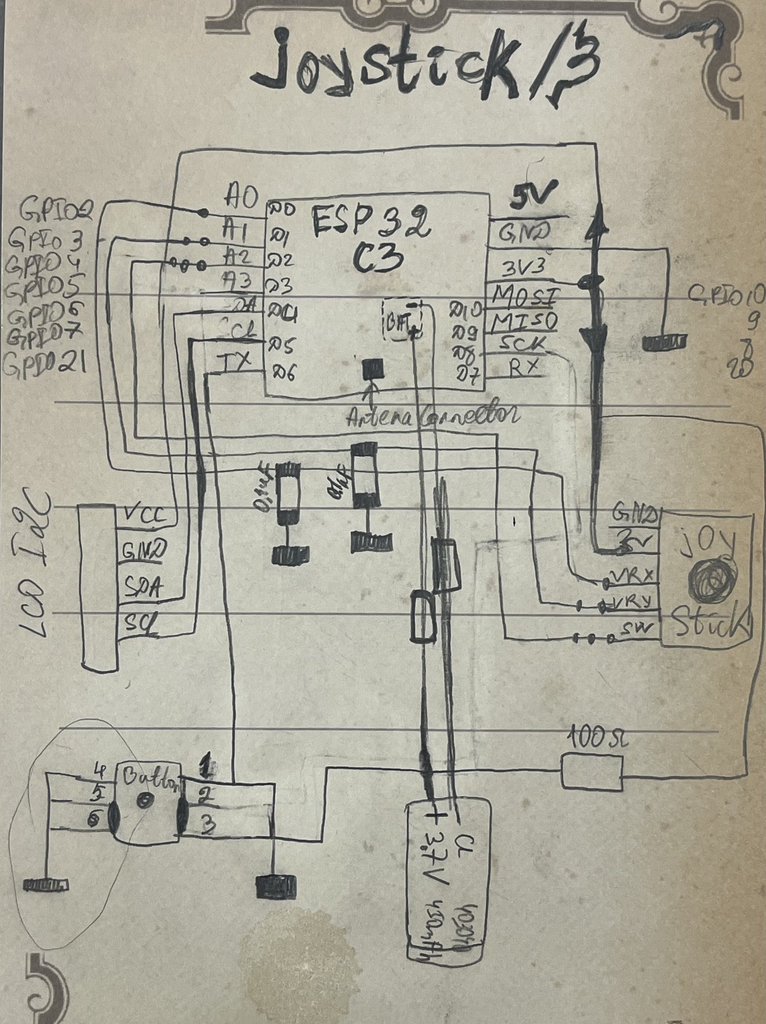 Joystick/3
A0
GPIO2
A1
GPIO3
A2
GPIO4
A3
GPIO5
DA
GPIO6
CL
GPIO7
TX
GPIO21
D0
D1
D2
D3
D4
D5
D6
ESP32
C3
BAT
D10
D9
D8
D7
5V
GND
3V3
MOSI
MISO
SCK
RX
GPIO10
9
8
20
Antena Connector
0,1uF
LCD I2C
VCC
GND
SDA
SCL
GND
3V
VRX
VRY
SW
joy
Stick
100Ω
4
5
6
Button
1
2
3
+ 3.7V 450mAh